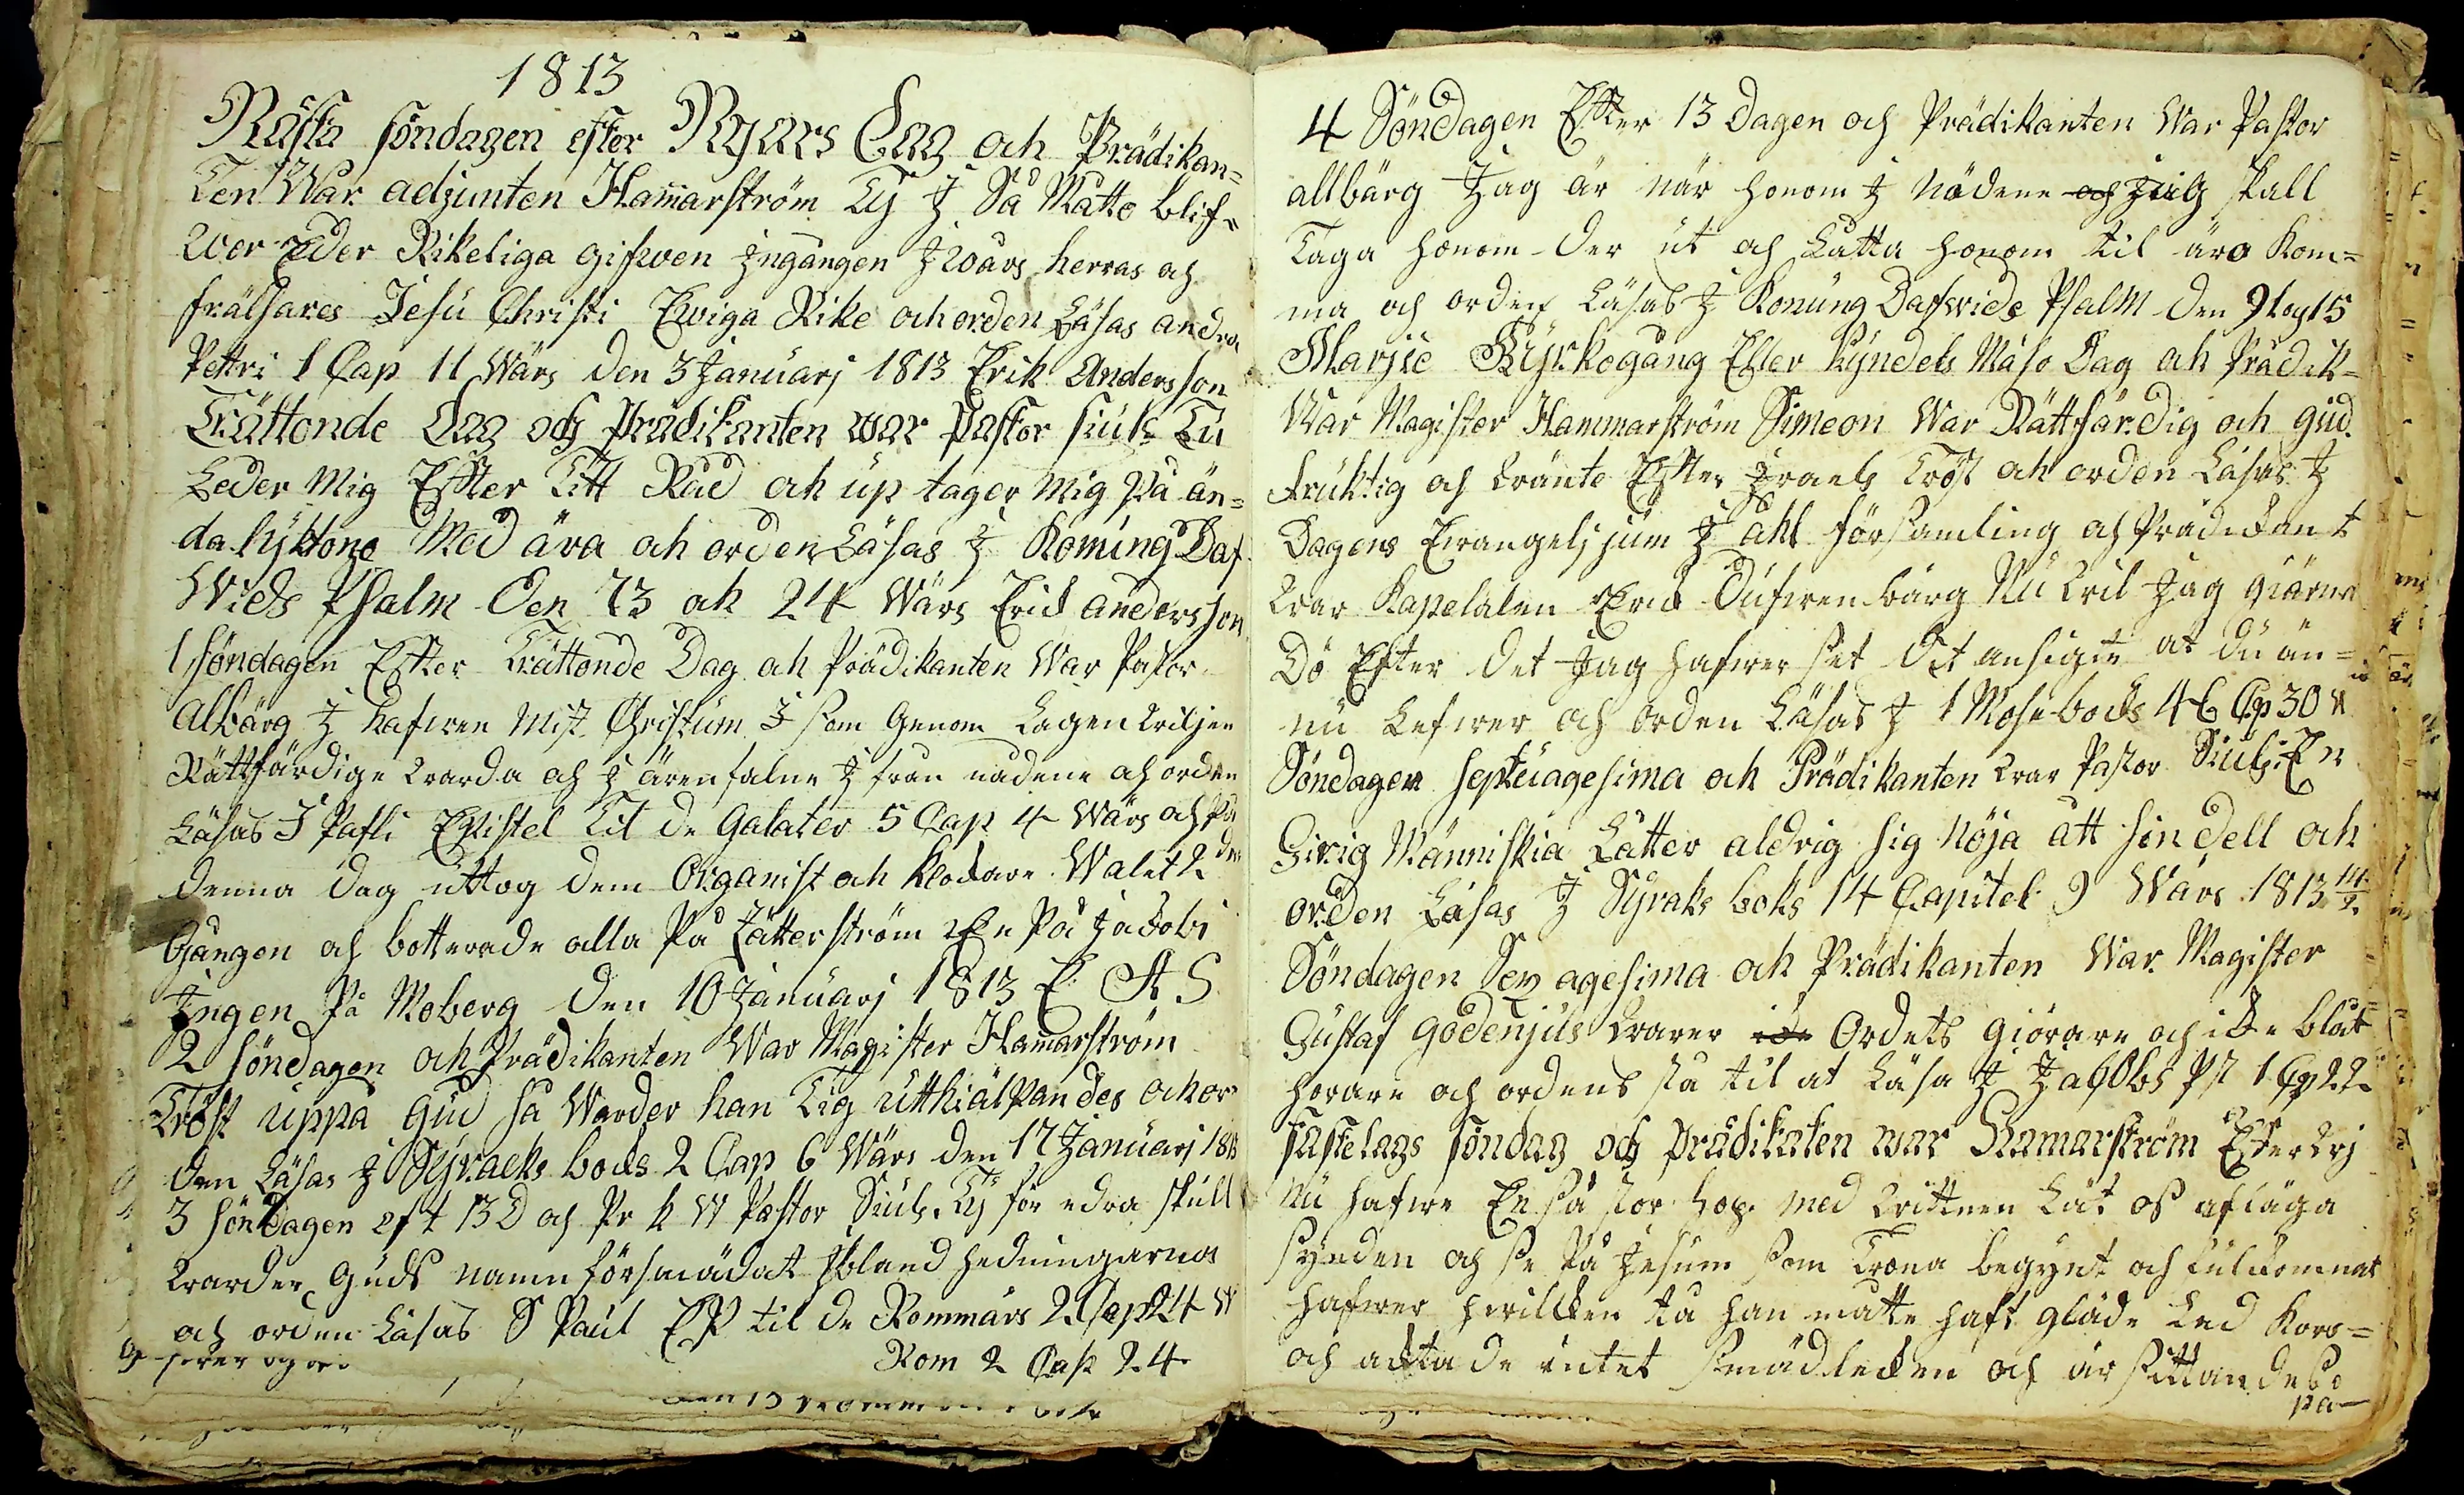 1813
Nästa söndagen efter Nyårs Dag och Prädikan=
Ten War adjunten Hamarström Ty J Så Måtto blif=
wer Eder Rikeliga gifwen Jngången J wårs herras och
frälsares Jesu Christi Ewiga Rike och orden Läsas andra
Pettri 1 Cap 11 Wärs den 3 Januarj 1813 Erik Andersson
Trättonde Dag och Prädikanten war Pastor siuls Tu
Leder Mig Effter Titt Råd och up tager mig på än=
da lyktone Med ära och orden Läsas J Konung Daf
Wids Psalm Den 73 och 24 Wärs Erick andersson
1 söndagen Efter Trättonde Dag och Prädikanten War Pastor
Albärg J hafwen Mist Christum J som Genom Lagen wiljen
Rättfärdige warda och J ären falne J från nådene och orden
Läsas J Pafli Epistel Til de Galater 5 Cap 4 Wärs och på
denna dag uttog dem Organist och klockare Walet 2 der
Gången och botterade alla På Zätterström En På Jacobi
Jngen På Moberg den 10 Januarj 1813 E A S
2 söndagen och Prädikanten War Magister Hamarström
Tröst uppå Gud så Warder han Tig utthiälpandes och or
den Läsas J Syrachs bocks 2 Cap 6 Wärs den 17 Januarj 1813
3 söndagen eft 13 D och Pr k W Pastor Siuls. Ty för edra skull
warder Guds namn försmädat Jbland hedningarna
och orden Läsas S Paul EP til de Rommars 2 Cap 24 W
Rom 2 Cap 24
4 Söndagen Efter 13 Dagen och Prädikanten War Pastor
allbärg Jag är när honom J Nödene och Jag skall
Taga honom der ut och Låtta honom til äro kom=
ma och orden Läsas J Konung Dafwids Psalm den 91 och 15
Marjie Kyrkogång Eller kyndels Mäso Dag och Prädik=
War Magister Hammarström Simeon War Rättfärdig och gud.
fruktig och wänte Efter Jsraels Tröst och orden Läsas J
Dagens Ewangeljium J ahl församling och Prädikant
war Kapelalen Eric Dufwenbärg Nu wil Jag giärna
Dö Efter det Jag hafwer set Dit ansigte at du än=
nu Lefwer och orden Läsas J 1 Mosebocks 46 Cp 30 w
Söndagen septuagesima och Prädikanten war Pastor Siuls. En
Girig Människia Låtter aldrig sig nöja att sin dell och
orden Läsas J Syraks boks 14 Capitel 9 Wärs 1813 14/2
Söndagen Sex agesima och Prädikanten War Magister
Gustaf godenjus warer icke Ordets giörare och icke blåt
hörare och ordens stå til at Läsa J Jacobs Pst 1 Cp 22
fastelags söndag och prädikaten war Hamarström Efter wj
Nu hafwe En så stor hop. med wittnen Låt oss aflägga
synden och se På Jesum som Trona begynt och fulkomnat
hafwer hwilcken tå han måtte haft gläde Led kors=
och acktade intet smädlecken och är sittandes
på